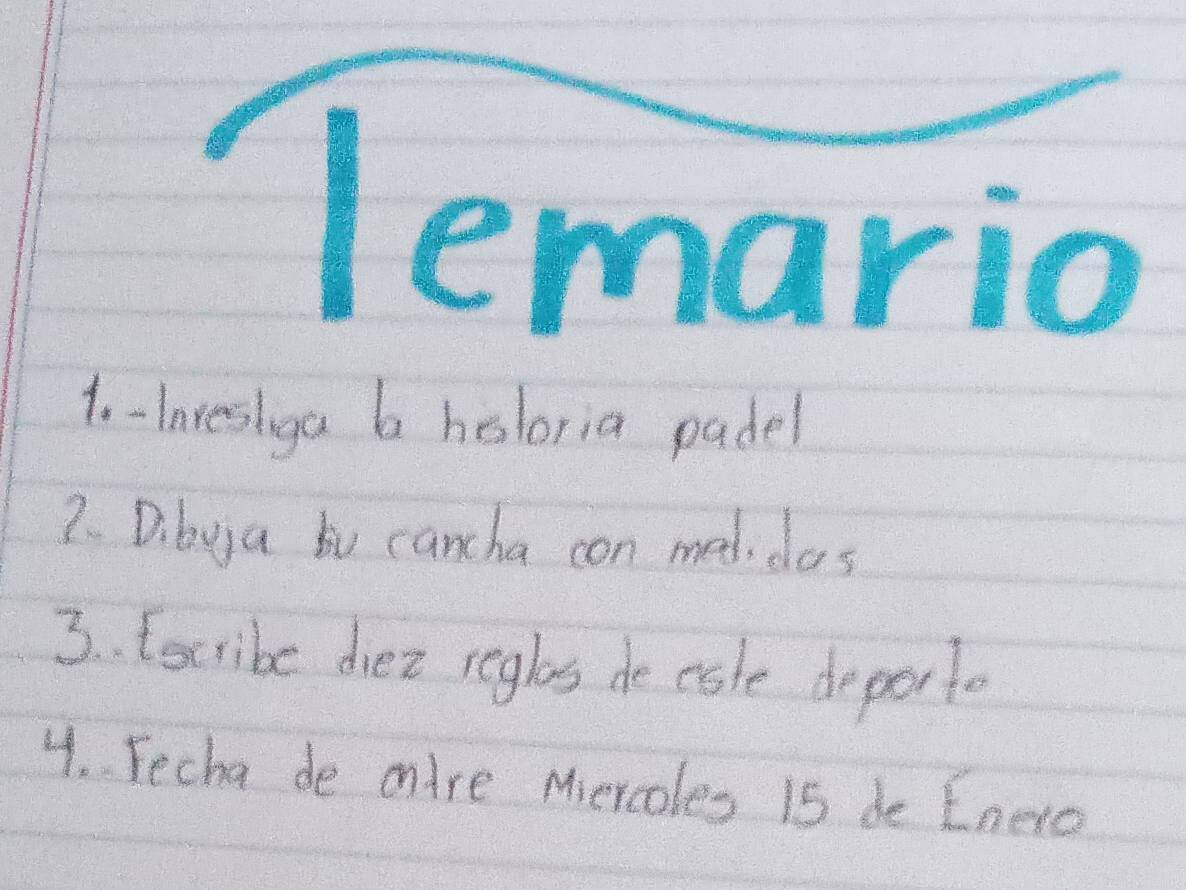 Temario
1.- Investiga la historia padel
2.- Dibuja tu cancha con medidas
3.- Escribe diez reglas de este deporte
4.- Fecha de entre Miercoles 15 de Enero